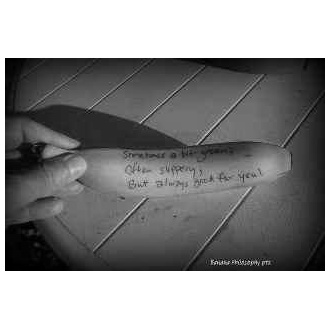 Sometimes a bit green
Often slippery,
But always good for you!
Banana Philosophy pt2